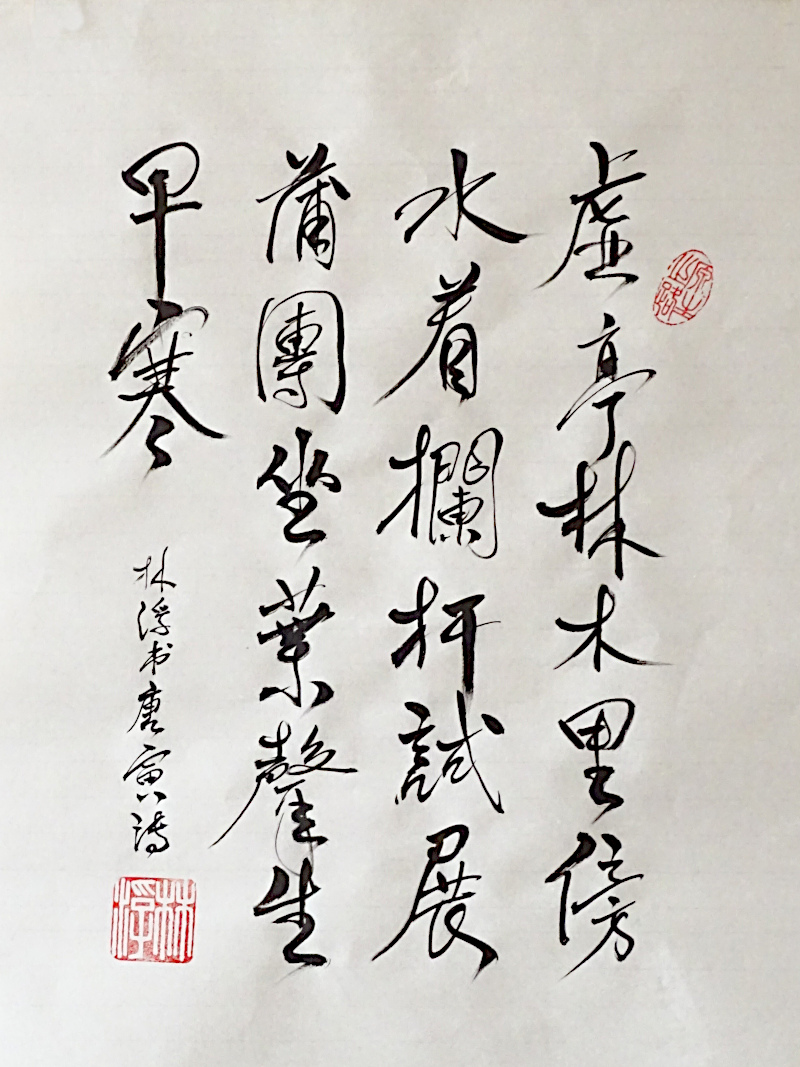 虚亭林木里傍
水着欄杆試展
蒲團坐葉聲生
早寒
林浮书唐寅诗
林浮